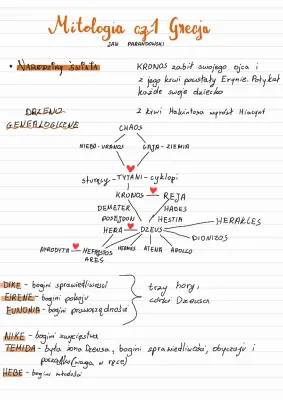 Mitologia cz.1 Grecja
JAN PARANDOWSKI
• NARODZINY ŚWIATA
KRONOS zabił swojego ojca i
z jego krwi powstały Erynie. Połykał
każde swoje dziecko
DRZEWO
GENEALOGICZNE
z krwi Hakintosa wyrósł Hiacynt
CHAOS
NIEBO-URANOS GAJA-ZIEMIA
sturęcy - TYTANI - cyklopi
KRONOS REJA
DEMETER HADES
POSEJDON HESTIA
HERA DZEUS HERAKLES
DIONIZOS
AFRODYTA HEFAJSTOS HERMES ATENA APOLLO
ARES
DIKE - bogini sprawiedliwości
EIRENE - bogini pokoju
EUNOMIA - bogini praworządności
trzy hory,
córki Dzeusa
NIKE - bogini zwycięstwa
TEMIDA - była żona Dzeusa, bogini sprawiedliwości, obyczaju i
porządku (waga w ręce)
HEBE - bogini młodości